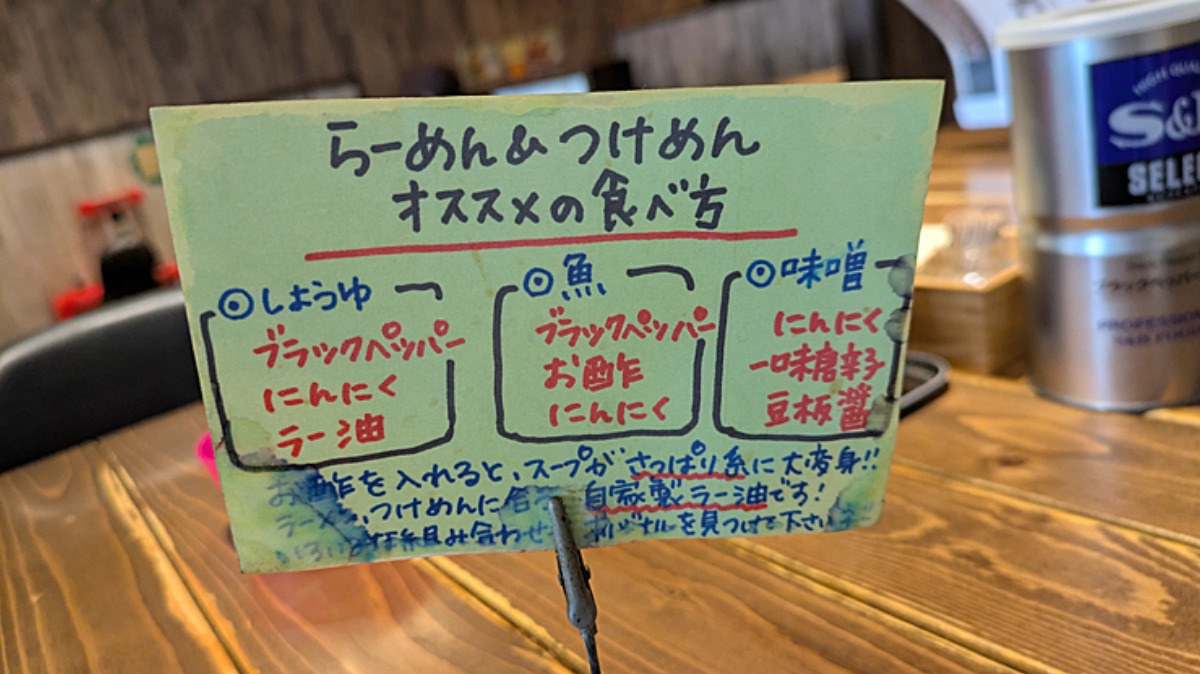 らーめん&つけめん
オススメの食べ方
しょうゆ
ブラックペッパー
にんにく
ラー油
魚
ブラックペッパー
お酢
にんにく
味噌
にんにく
一味唐辛子
豆板醤
お酢を入れると、スープがさっぱり系に大変身!!
ラーメン、つけめんに合う 自家製ラー油です!
組み合わせ オリジナルを見つけて下さい
HIGH QUA
S&
SELE